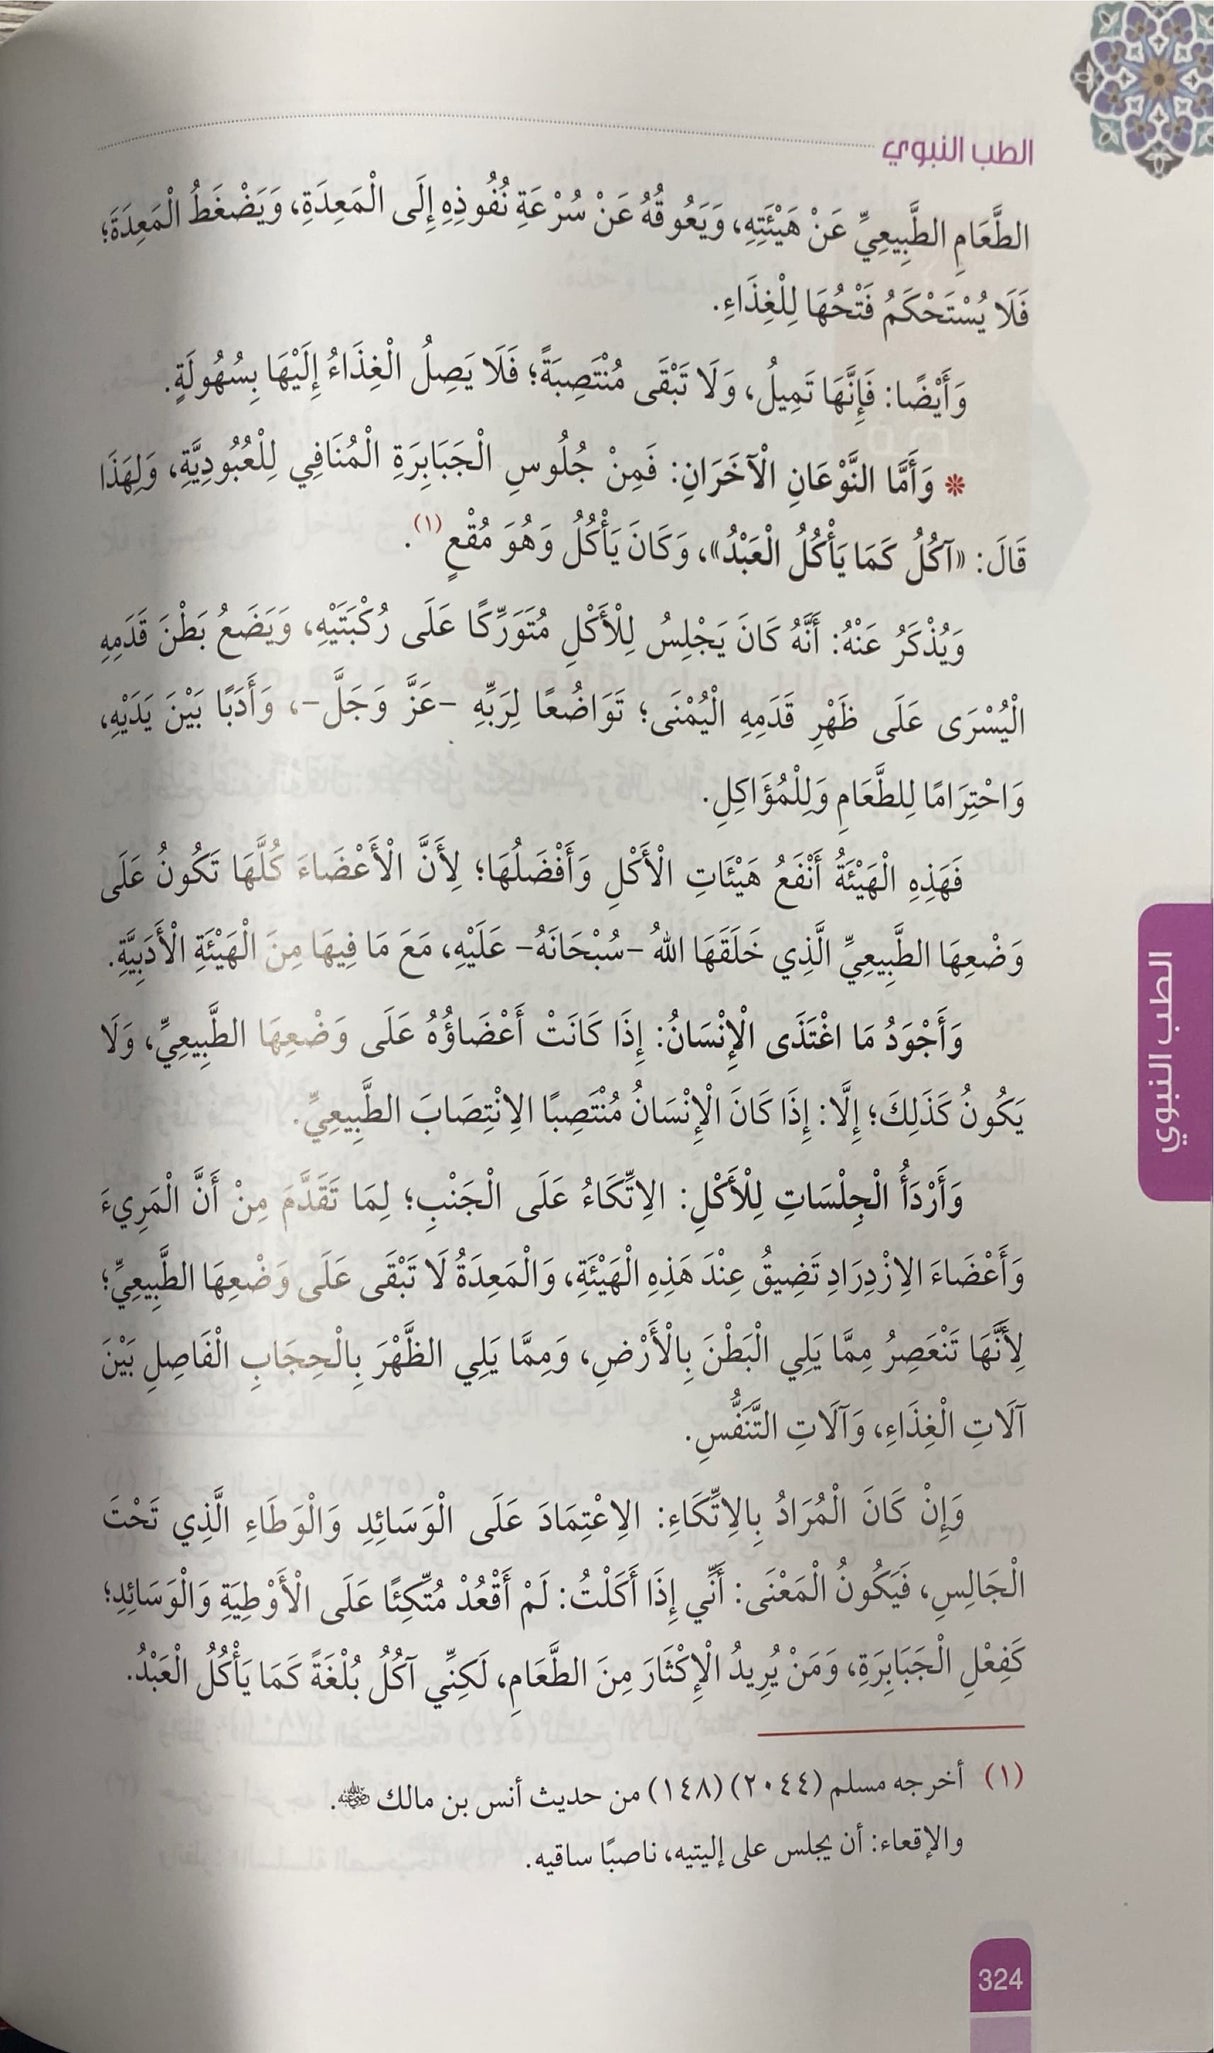 الطب النبوي
الطَّعَامِ الطَّبِيعِيِّ عَنْ هَيْئَتِهِ، وَيَعُوقُهُ عَنْ سُرْعَةِ نُفُوذِهِ إِلَى الْمَعِدَةِ، وَيَضْغَطُ الْمَعِدَةَ؛
فَلَا يُسْتَحْكَمُ فَتْحُهَا لِلْغِذَاءِ.
وَأَيْضًا: فَإِنَّهَا تَمِيلُ، وَلَا تَبْقَى مُنْتَصِبَةً؛ فَلَا يَصِلُ الْغِذَاءُ إِلَيْهَا بِسُهُولَةٍ.
* وَأَمَّا النَّوْعَانِ الْآخَرَانِ: فَمِنْ جُلُوسِ الْجَبَابِرَةِ الْمُنَافِي لِلْعُبُودِيَّةِ، وَلِهَذَا
قَالَ: «آكُلُ كَمَا يَأْكُلُ الْعَبْدُ»، وَكَانَ يَأْكُلُ وَهُوَ مُقْعٍ(١).
وَيُذْكَرُ عَنْهُ: أَنَّهُ كَانَ يَجْلِسُ لِلْأَكْلِ مُتَوَرِّكًا عَلَى رُكْبَتَيْهِ، وَيَضَعُ بَطْنَ قَدَمِهِ
الْيُسْرَى عَلَى ظَهْرِ قَدَمِهِ الْيُمْنَى؛ تَوَاضُعًا لِرَبِّهِ -عَزَّ وَجَلَّ-، وَأَدَبًا بَيْنَ يَدَيْهِ،
وَاحْتِرَامًا لِلطَّعَامِ وَلِلْمُؤَاكِلِ.
فَهَذِهِ الْهَيْئَةُ أَنْفَعُ هَيْئَاتِ الْأَكْلِ وَأَفْضَلُهَا؛ لِأَنَّ الْأَعْضَاءَ كُلَّهَا تَكُونُ عَلَى
وَضْعِهَا الطَّبِيعِيِّ الَّذِي خَلَقَهَا اللهُ -سُبْحَانَهُ- عَلَيْهِ، مَعَ مَا فِيهَا مِنَ الْهَيْئَةِ الْأَدَبِيَّةِ.
وَأَجْوَدُ مَا اغْتَذَى الْإِنْسَانُ: إِذَا كَانَتْ أَعْضَاؤُهُ عَلَى وَضْعِهَا الطَّبِيعِيِّ، وَلَا
يَكُونُ كَذَلِكَ؛ إِلَّا: إِذَا كَانَ الْإِنْسَانُ مُنْتَصِبًا الِانْتِصَابَ الطَّبِيعِيَّ.
وَأَرْدَأُ الْجِلْسَاتِ لِلْأَكْلِ: الِاتِّكَاءُ عَلَى الْجَنْبِ؛ لِمَا تَقَدَّمَ مِنْ أَنَّ الْمَرِيءَ
وَأَعْضَاءَ الِازْدِرَادِ تَضِيقُ عِنْدَ هَذِهِ الْهَيْئَةِ، وَالْمَعِدَةُ لَا تَبْقَى عَلَى وَضْعِهَا الطَّبِيعِيِّ؛
لِأَنَّهَا تَنْعَصِرُ مِمَّا يَلِي الْبَطْنَ بِالْأَرْضِ، وَمِمَّا يَلِي الظَّهْرَ بِالْحِجَابِ الْفَاصِلِ بَيْنَ
آلَاتِ الْغِذَاءِ، وَآلَاتِ التَّنَفُّسِ.
وَإِنْ كَانَ الْمُرَادُ بِالِاتِّكَاءِ: الِاعْتِمَادَ عَلَى الْوَسَائِدِ وَالْوَطَاءِ الَّذِي تَحْتَ
الْجَالِسِ، فَيَكُونُ الْمَعْنَى: أَنِّي إِذَا أَكَلْتُ: لَمْ أَقْعُدْ مُتَّكِئًا عَلَى الْأَوْطِيَةِ وَالْوَسَائِدِ؛
كَفِعْلِ الْجَبَابِرَةِ، وَمَنْ يُرِيدُ الْإِكْثَارَ مِنَ الطَّعَامِ، لَكِنِّي آكُلُ بُلْغَةً كَمَا يَأْكُلُ الْعَبْدُ.
(١) أخرجه مسلم (٢٠٤٤) (١٤٨) من حديث أنس بن مالك ﵁.
والإقعاء: أن يجلس على إليتيه، ناصبًا ساقيه.
324
الطب النبوي